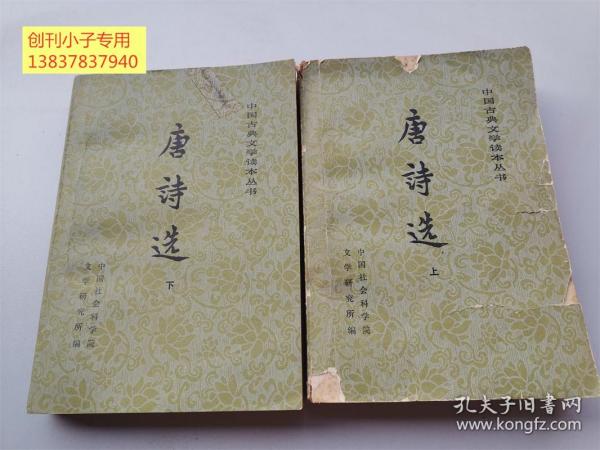 创刊小子专用
13837837940
中国古典文学读本丛书
唐詩选
下
中国社会科学院
文学研究所编
中国古典文学读本丛书
唐詩选
上
中国社会科学院
文学研究所编
孔夫子旧书网
www.kongfz.com